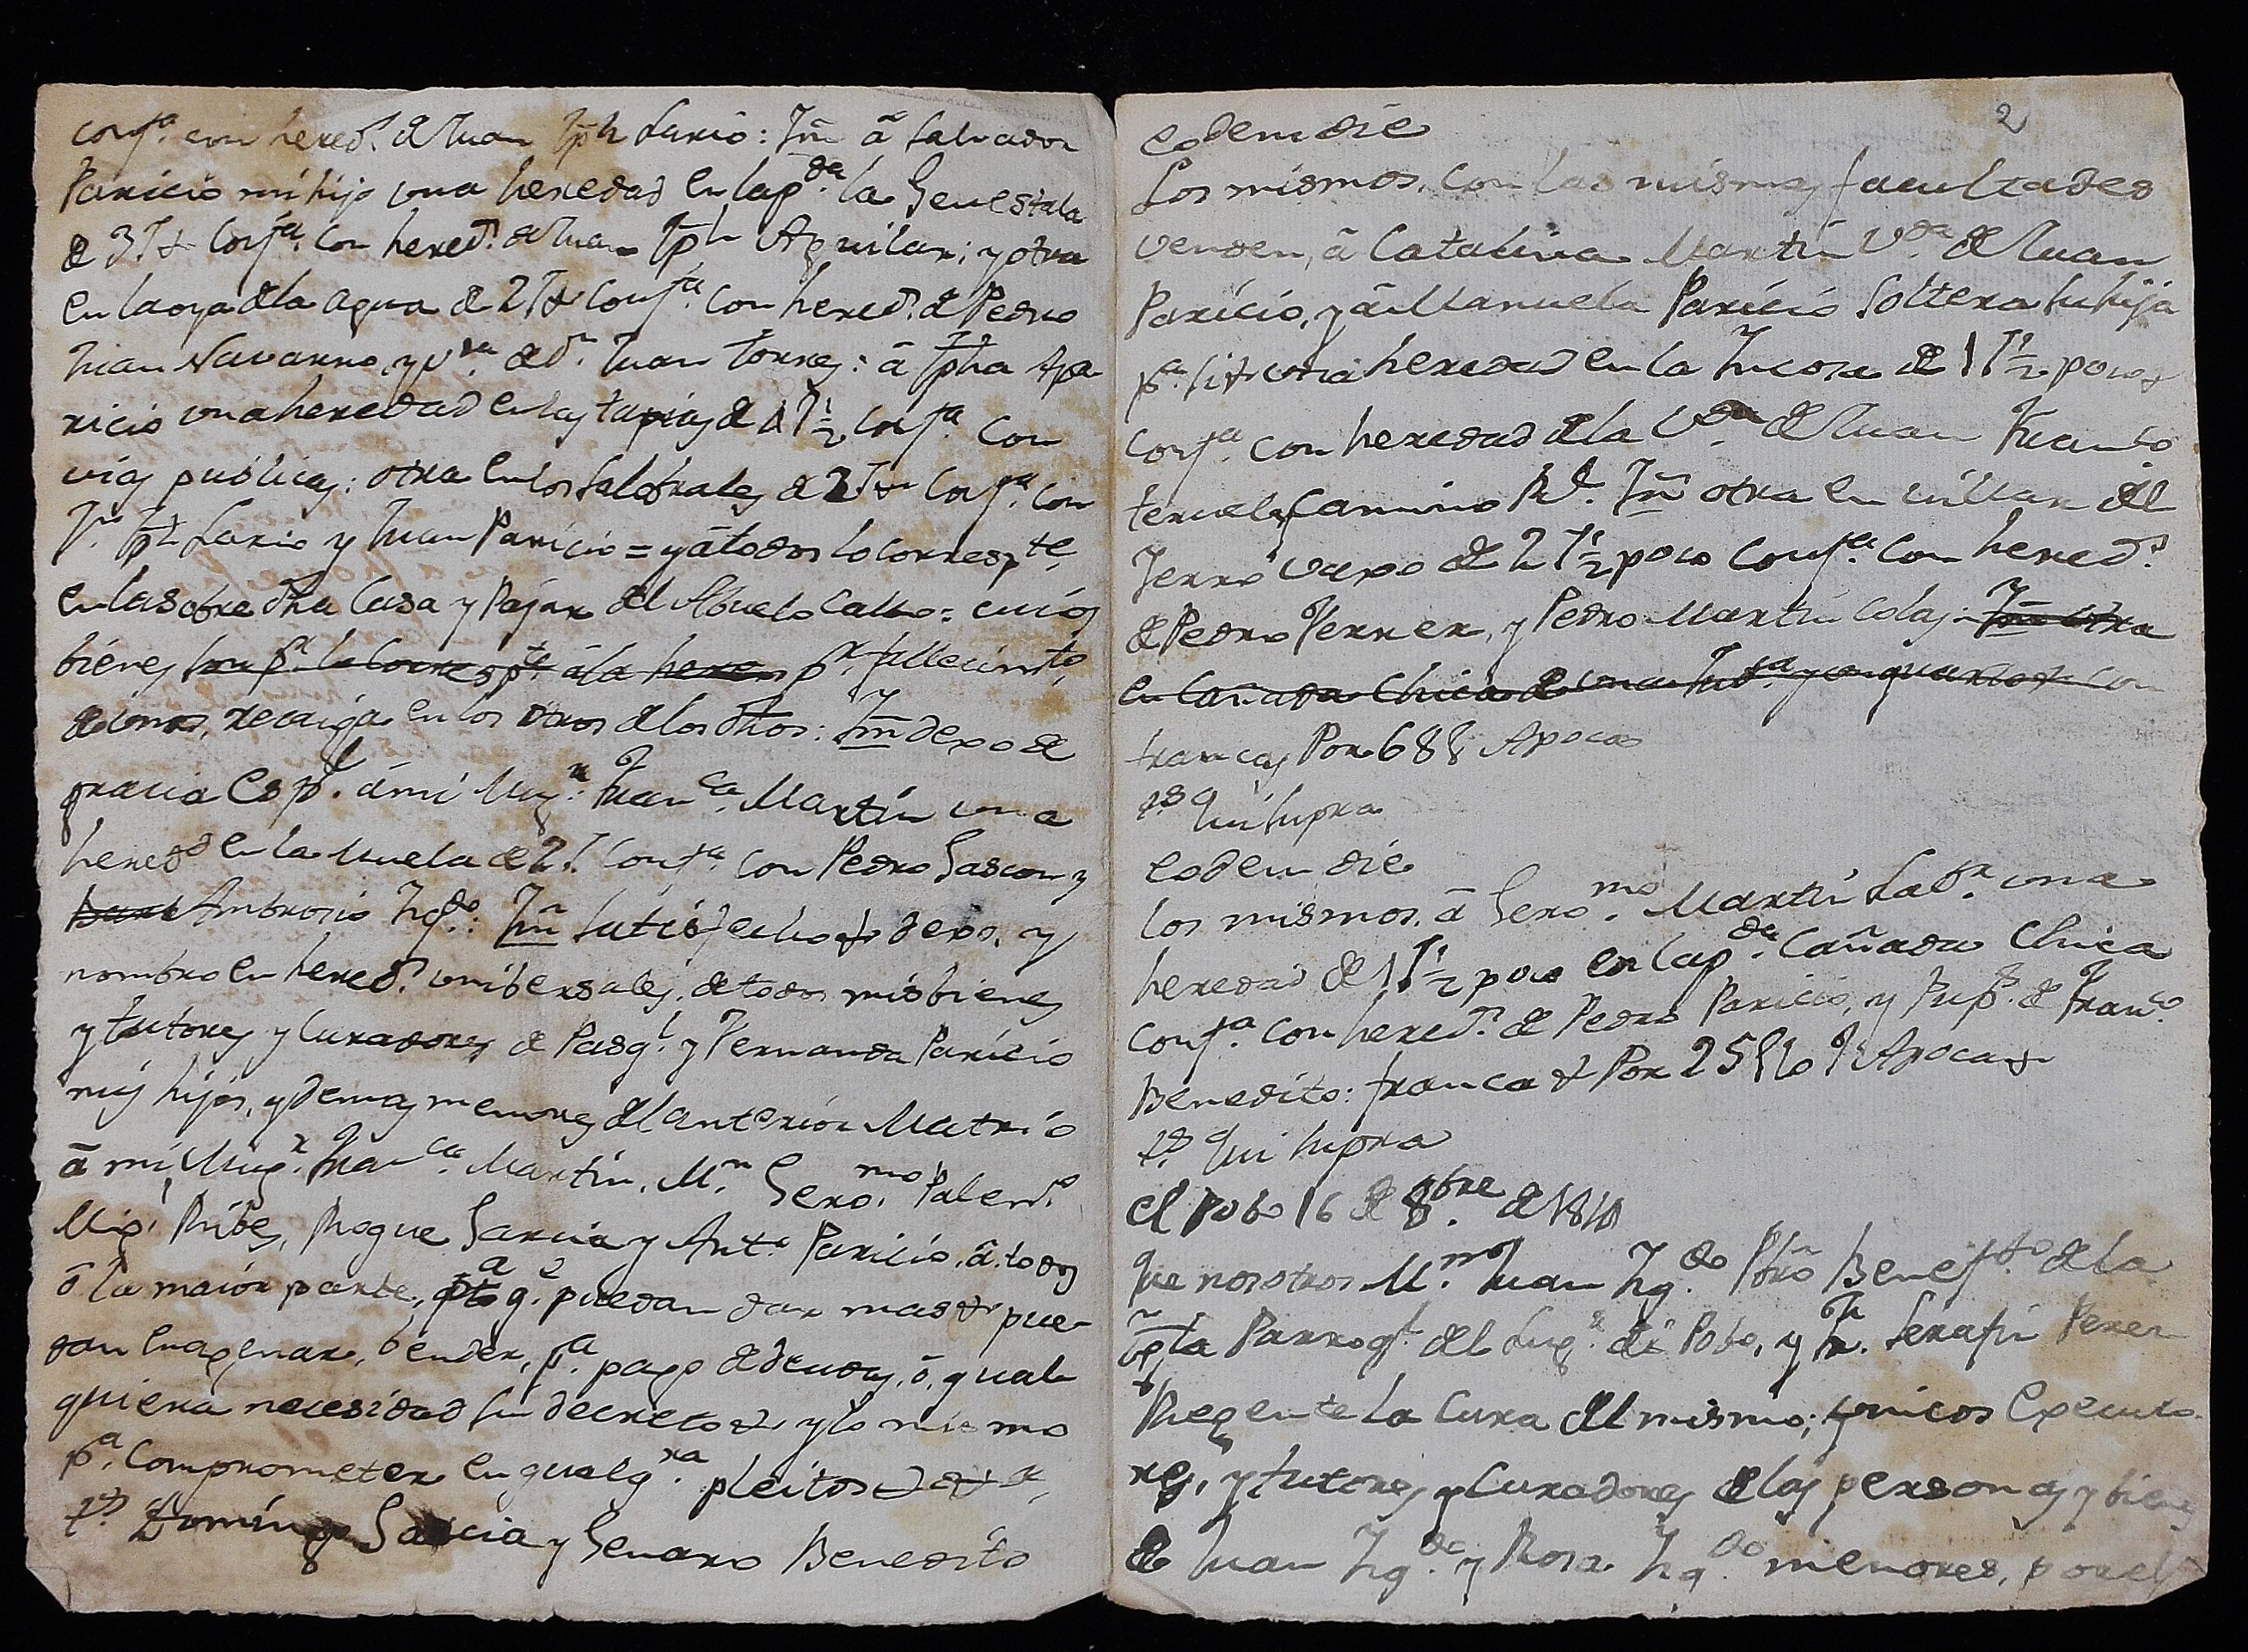 conf.ta con hered.d de Juan Jph Lario: Ittm â Salvador
Paricio mi hijo una heredad en la p.da la Genestala
de 3 T.& Conf.ta con hered.d de Juan Jph Aguilar; y otra
en la oya de la agua de 2 T.& conf.ta con hered.d de Pedro
Juan Navarro, y v.da de d.n Juan Torres: â Jpha Apa
ricio una heredad en las tapias de 1 T.½ conf.ta con
vias publicas: otra en los Salobrales de 2 T.& conf.ta con
J.n Jph Lario y Juan Paricio = y â todos lo corresp.te
en la sobre dha Casa y Pajar del Abuelo Calbo = cuios
bienes p.r fallecim.to
de unos, recaiga en los otros de los dhos: Ittm dexo de
gracia esp.l â mi Mug.r Fran.ca Martin una
hered.d en la Muela de 2 T. conf.ta con Pedro Gascon y
Ambrosio Yzq.do: Ittm satisfecho & dexo, y
nombro en hered.s unibersales, de todos mis bienes
y tutores y Curadores de Pasq.l y Fernanda Paricio
mis hijos, y demas menores del anterior Matrio
â mi Mug.r Fran.ca Martin, M.n Gero.mo Palen
Mig.l Ribes, Roque Garcia y Ant.o Paricio, â todos
ô la maior parte, q.e puedan dar mas & pue-
dan enagenar, bender, p.a pago de deudas, ô, qual-
quiera necesidad sin decreto & y lo mismo
p.a Comprometer en qualq.ra pleitos & & &
t.s Domingo Garcia y Genaro Benedito
2
eodem die
Los mismos, con las mismas facultades
venden, â Catalina Martin V.da de Juan
Paricio, y â Manuela Paricio Soltera su hija
p.a si & una heredad en la de 1 T.½ poco &
conf.ta con heredad de la V.da de Juan Fran.co
teruel y Camino R.l Ittm otra en villar del
Yerro vaxo de 2 T.½ poco conf.ta con hered.s
de Pedro Ferrer, y Pedro Martin Colas: Ittm otra
en Cañada Chica de una con
francas Por 68 £ Apoca
t.s qui supra
eodem die
los mismos, â Gero.mo Martin Lab.r una
heredad de 1 T.½ poco en la p.da Cañada Chica
conf.ta con hered.s de Pedro Paricio, y Pup.s de Fran.co
Benedito: franca & Por 25 £ 10 s Apoca &
t.s qui supra
el Pobo 16 de 8.bre de 1810
Que nosotros M.n Juan Yzq.do Pbro Benef.do de la
Yg.a Parroq.l del Lug.r del Pobo, y Fr. Serafin Perez
Regente la Cura del mismo; unicos Executo-
res, y tutores y Curadores de las personas y bienes
de Juan Yzq.do y Rosa Yzq.do menores, por el